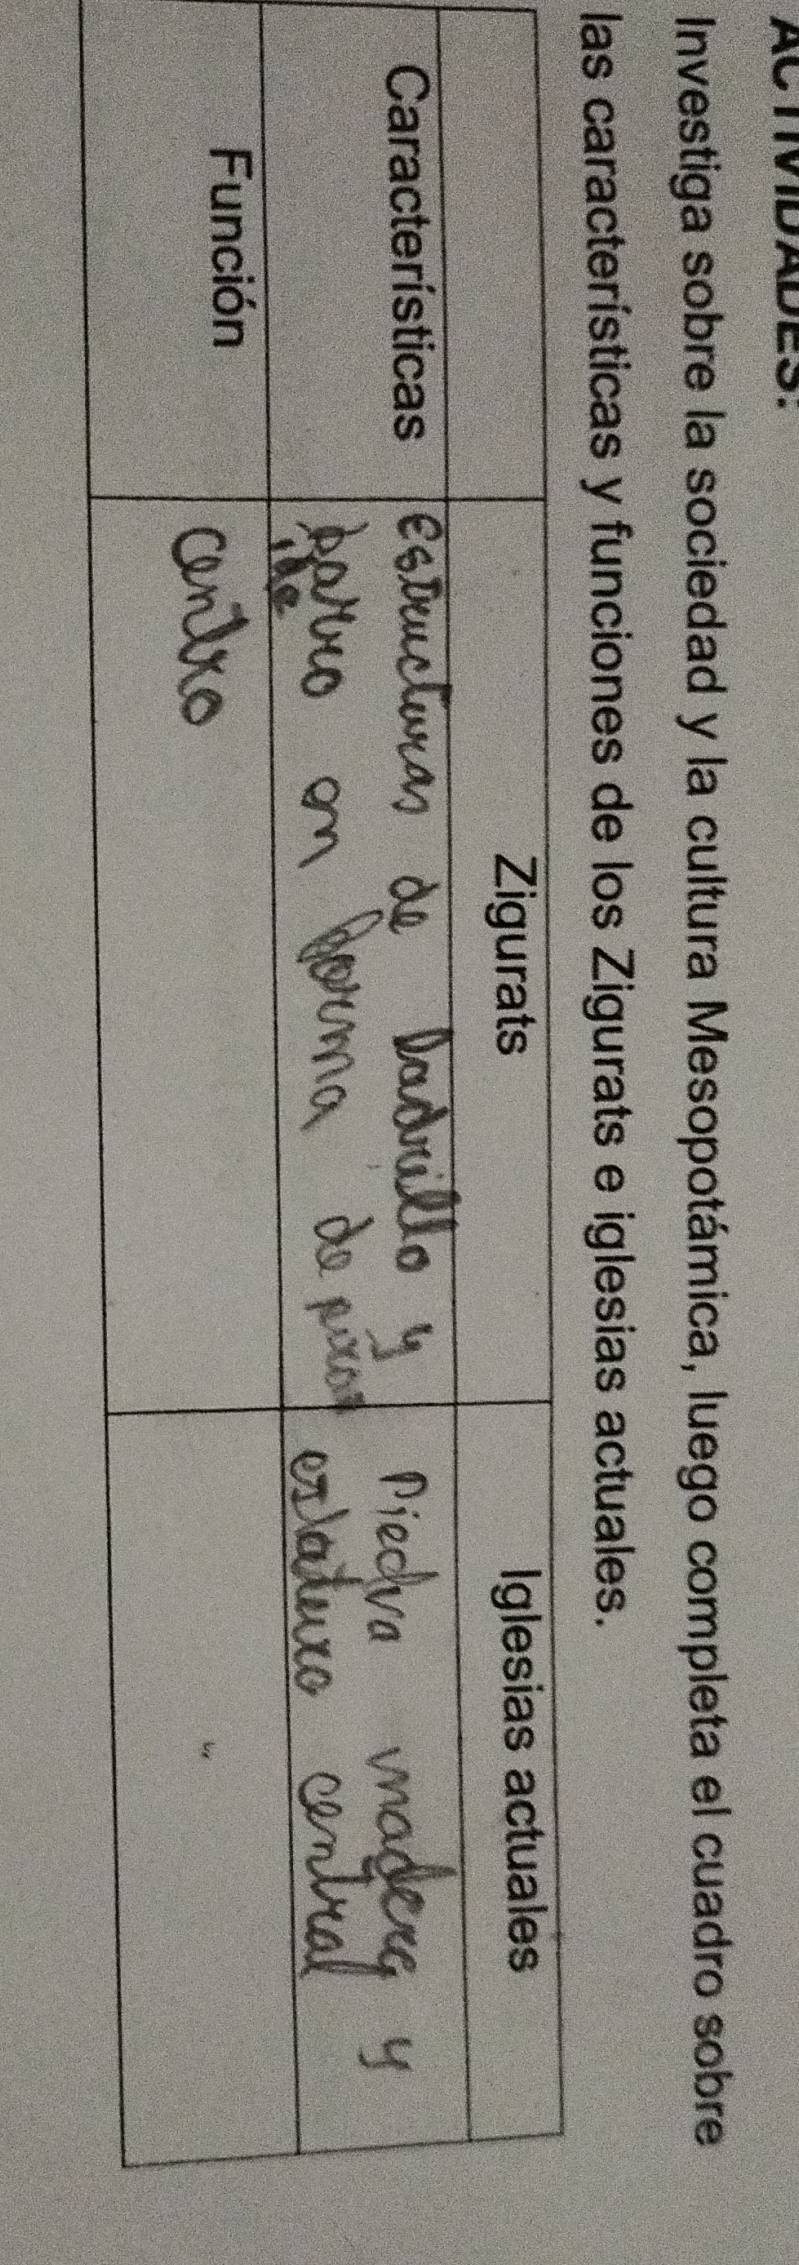 ACTIVIDADES:
Investiga sobre la sociedad y la cultura Mesopotámica, luego completa el cuadro sobre
las características y funciones de los Zigurats e iglesias actuales.
Zigurats
Iglesias actuales
Características
estructuras de Ladrillo y
barro en forma de
Piedra madera y
central
Función
centro